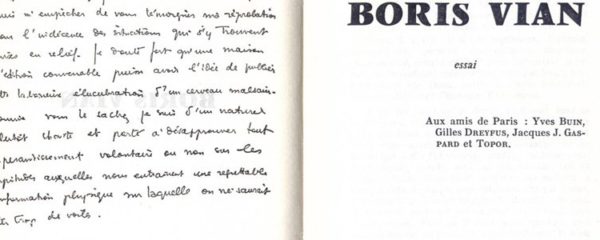 m'empêcher de vous témoigner ma réprobation
l'indécence des situations qui s'y trouvent
en relief. Je doute fort qu'une maison
d'édition convenable puisse avoir l'idée de publier
laborieuse élucubration d'un cerveau malsain.
vous le sachez je suis d'un naturel
plutôt chaste et porté à désapprouver tout
volontaire ou non sur les
turpitudes auxquelles nous entraîne une regrettable
conformation physique sur laquelle on ne saurait
trop de voiles.
BORIS VIAN
essai
Aux amis de Paris : Yves BUIN,
Gilles DREYFUS, Jacques J. GAS-
PARD et TOPOR.